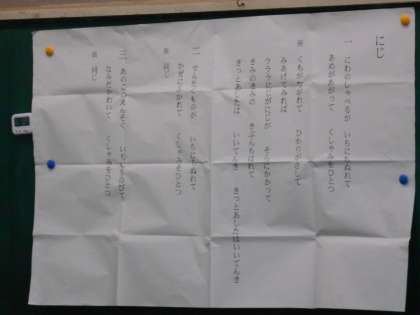 にじ
一 にわのしゃべるが いちにちぬれて
あめがあがって くしゃみをひとつ
※ くもがながれて ひかりがさして
みあげてみれば
ラララ にじがにじが そらにかかって
きみのきみの きぶんもはれて
きっとあしたは いいてんき きっとあしたはいいてんき
二 せんたくものが いちにちぬれて
かぜにふかれて くしゃみをひとつ
※ 同じ
三 あのこのえんそく いちにちのびて
なみだかわいて くしゃみをひとつ
※ 同じ